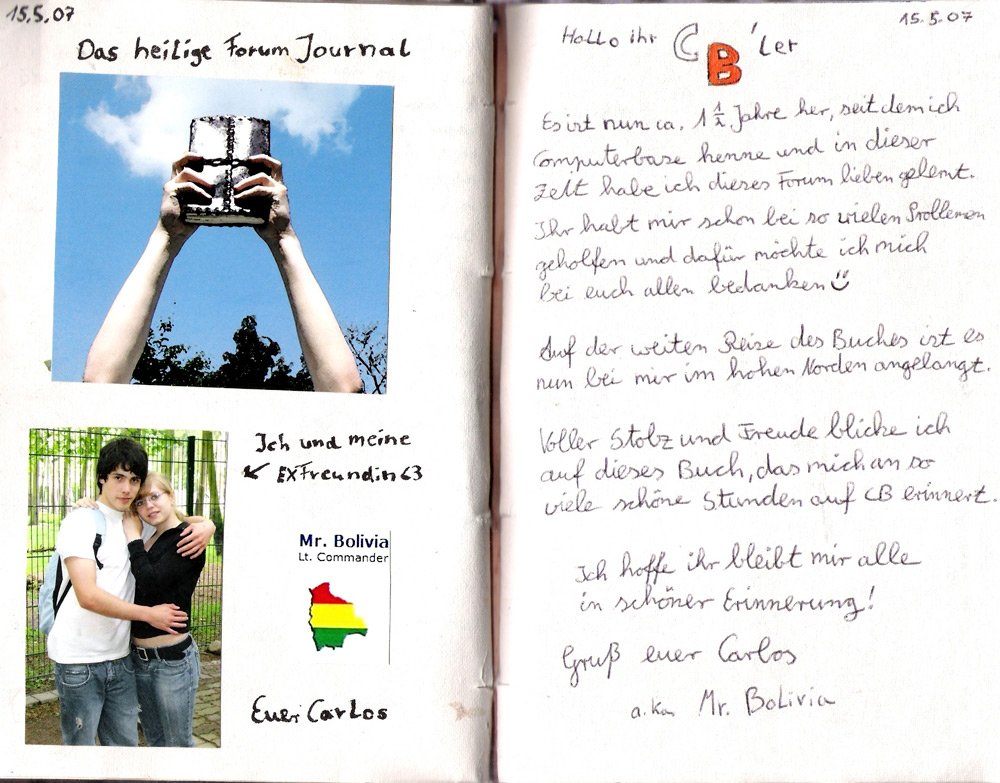 15.5.07
Das heilige Forum Journal
Ich und meine
ExFreundin <3
Mr. Bolivia
Lt. Commander
Euer Carlos
15.5.07
Hallo ihr CB'ler
Es ist nun ca. 1 1/2 Jahre her, seit dem ich
Computerbase kenne und in dieser
Zeit habe ich dieses Forum lieben gelernt.
Ihr habt mir schon bei so vielen Problemen
geholfen und dafür möchte ich mich
bei euch allen bedanken ☺
Auf der weiten Reise des Buches ist es
nun bei mir im hohen Norden angelangt.
Voller Stolz und Freude blicke ich
auf dieses Buch, das mich an so
viele schöne Stunden auf CB erinnert.
Ich hoffe ihr bleibt mir alle
in schöner Erinnerung!
Gruß euer Carlos
a.k.a. Mr. Bolivia